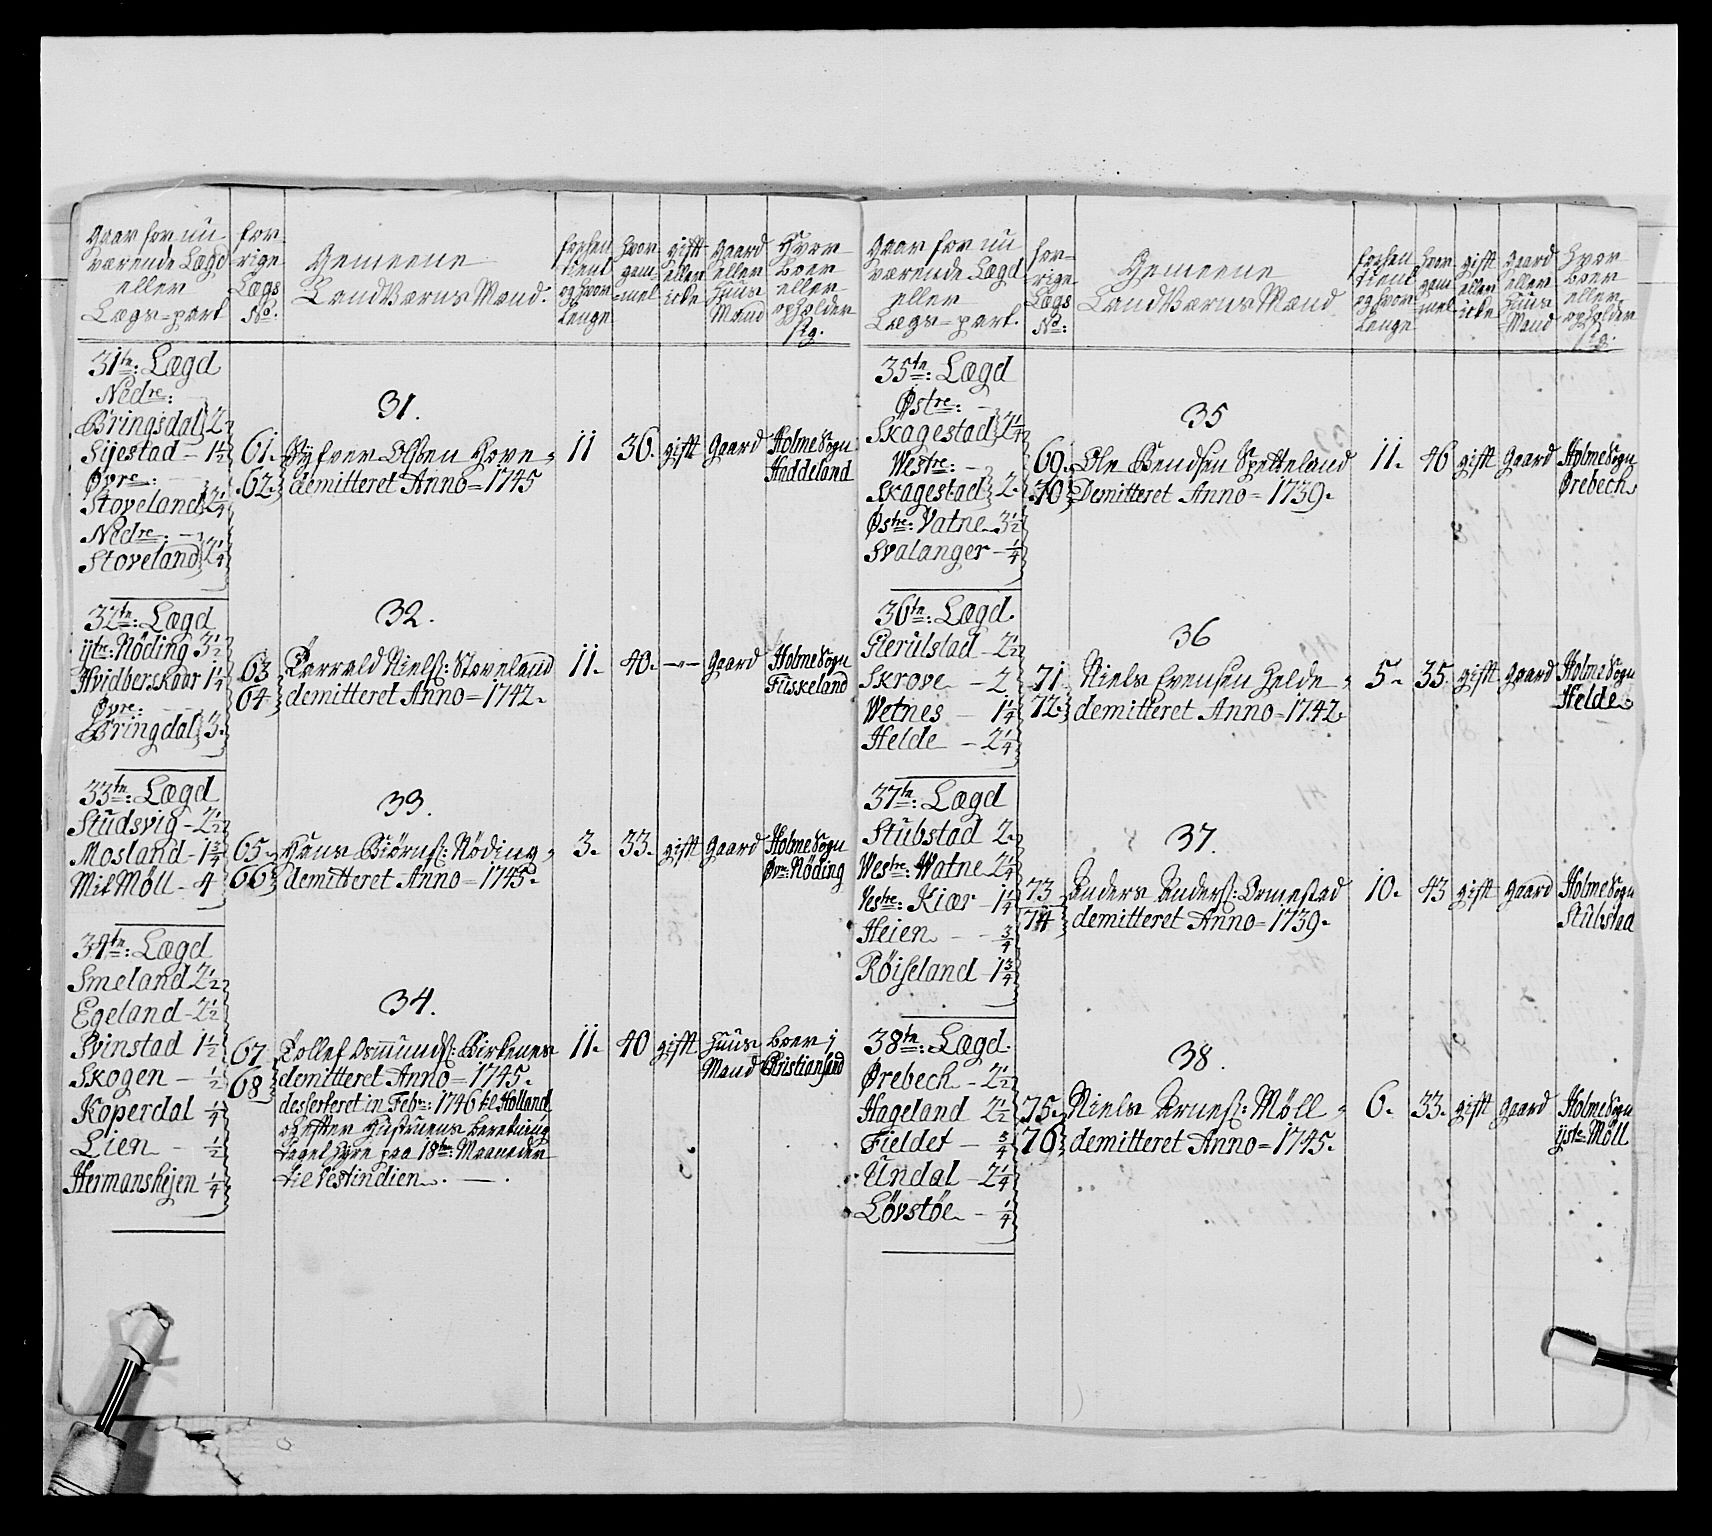 Gaar for nu
værende Lægd
eller
Lægs=part
for-
rige
Lægs
No.
Gemeene
LandVærns Mænd.
forhen
tient
og hvor
Lenge
hvor
gam-
mel
gift
eller
icke
Gaard
eller
Huus
Mand
Hvor
boer
eller
opholder
sig.
31te: Lægd
Nedre:
Bringsdal 2
Sijestad - 1½
Øvre:
Stoveland 2¼
Nedre:
Stoveland 2¼
31.
61.
62.
Olsen Hove
demitteret Anno = 1745
11
36.
gift
Gaard
Holme Sogn
Haddeland
32te: Lægd
ijtre: Nöding 3½
Hvidberskaar 1¼
Øvre:
Bringdal 3.
32.
63
64
Tarvald Niels: Stoveland
demitteret Anno = 1742.
11.
40.
Gaard
Holme Sogn
Fuskeland
33te: Lægd
Studsvig - 2½
Mosland - 1¾
Mit Möll - 4
33.
65.
66
Hans Biörns: Nöding
demitteret Anno = 1745.
3.
33.
gift
Gaard
Holme Sogn
Øvre Nöding
34te: Lægd
Smeland 2½
Egeland - 2½
Svinstad 1½
Skogen - ½
Koperdal ¼
Lien - ½
Hermansheijen ¼
34.
67
68
Tollef Osmunds: Birkenes
demitteret Anno = 1745.
desserteret in Febr: 1746 til Holland
og efter Hustruens beretning
taget hyre paa 18te: Maaneder
til Vestindien.
11.
40
gift
Huus
Mand
boer i
Christiansand
Gaar for nu
værende Lægd
eller
Lægs=part.
for-
rige
Lægs
No:
Gemeene
LandVærns Mænd
forhen
tient
og hvor
Lenge
hvor
gam
mel
gift
eller
icke
Gaard
eller
Huus
Mand
hvor
boer
eller
opholder
sig.
35te: Lægd
Østre:
Skagestad 2¼
Westre:
Skagestad 2.
Østre: Vatne 3½
Svalanger - ¼
35
69.
70
Ole Bendsen Spetteland
Demitteret Anno = 1739.
11.
46
gift
Gaard
Holme Sogn
Ørebech
36te: Lægd.
Gierulstad - 2½
Skrove - 2
Vetnes - 1¼
Helde - 2¼
36
71
72.
Niels Evensen Helde
demitteret Anno = 1742
5.
35.
gift
Gaard
Holme Sogn
Helde
37te: Lægd
Stubstad 2.
Westre: Watne 2¼
Vestre: Kiær - 1¼
Heien - ¾
Røiseland - 1¾
37.
73
74
Anders Anders: Ormestad
demitteret Anno = 1739.
10.
43
gift
Gaard
Holme Sogn
Stubstad
38te: Lægd.
Ørebech - 2½
Hageland 2½
Fieldet - ¾
Undal - 2¼
Lövstöe - ¼
38.
75.
76
Niels Arnes: Möll
demitteret Anno = 1745.
6.
33.
gift
Gaard
Holme Sogn
ijtre Möll